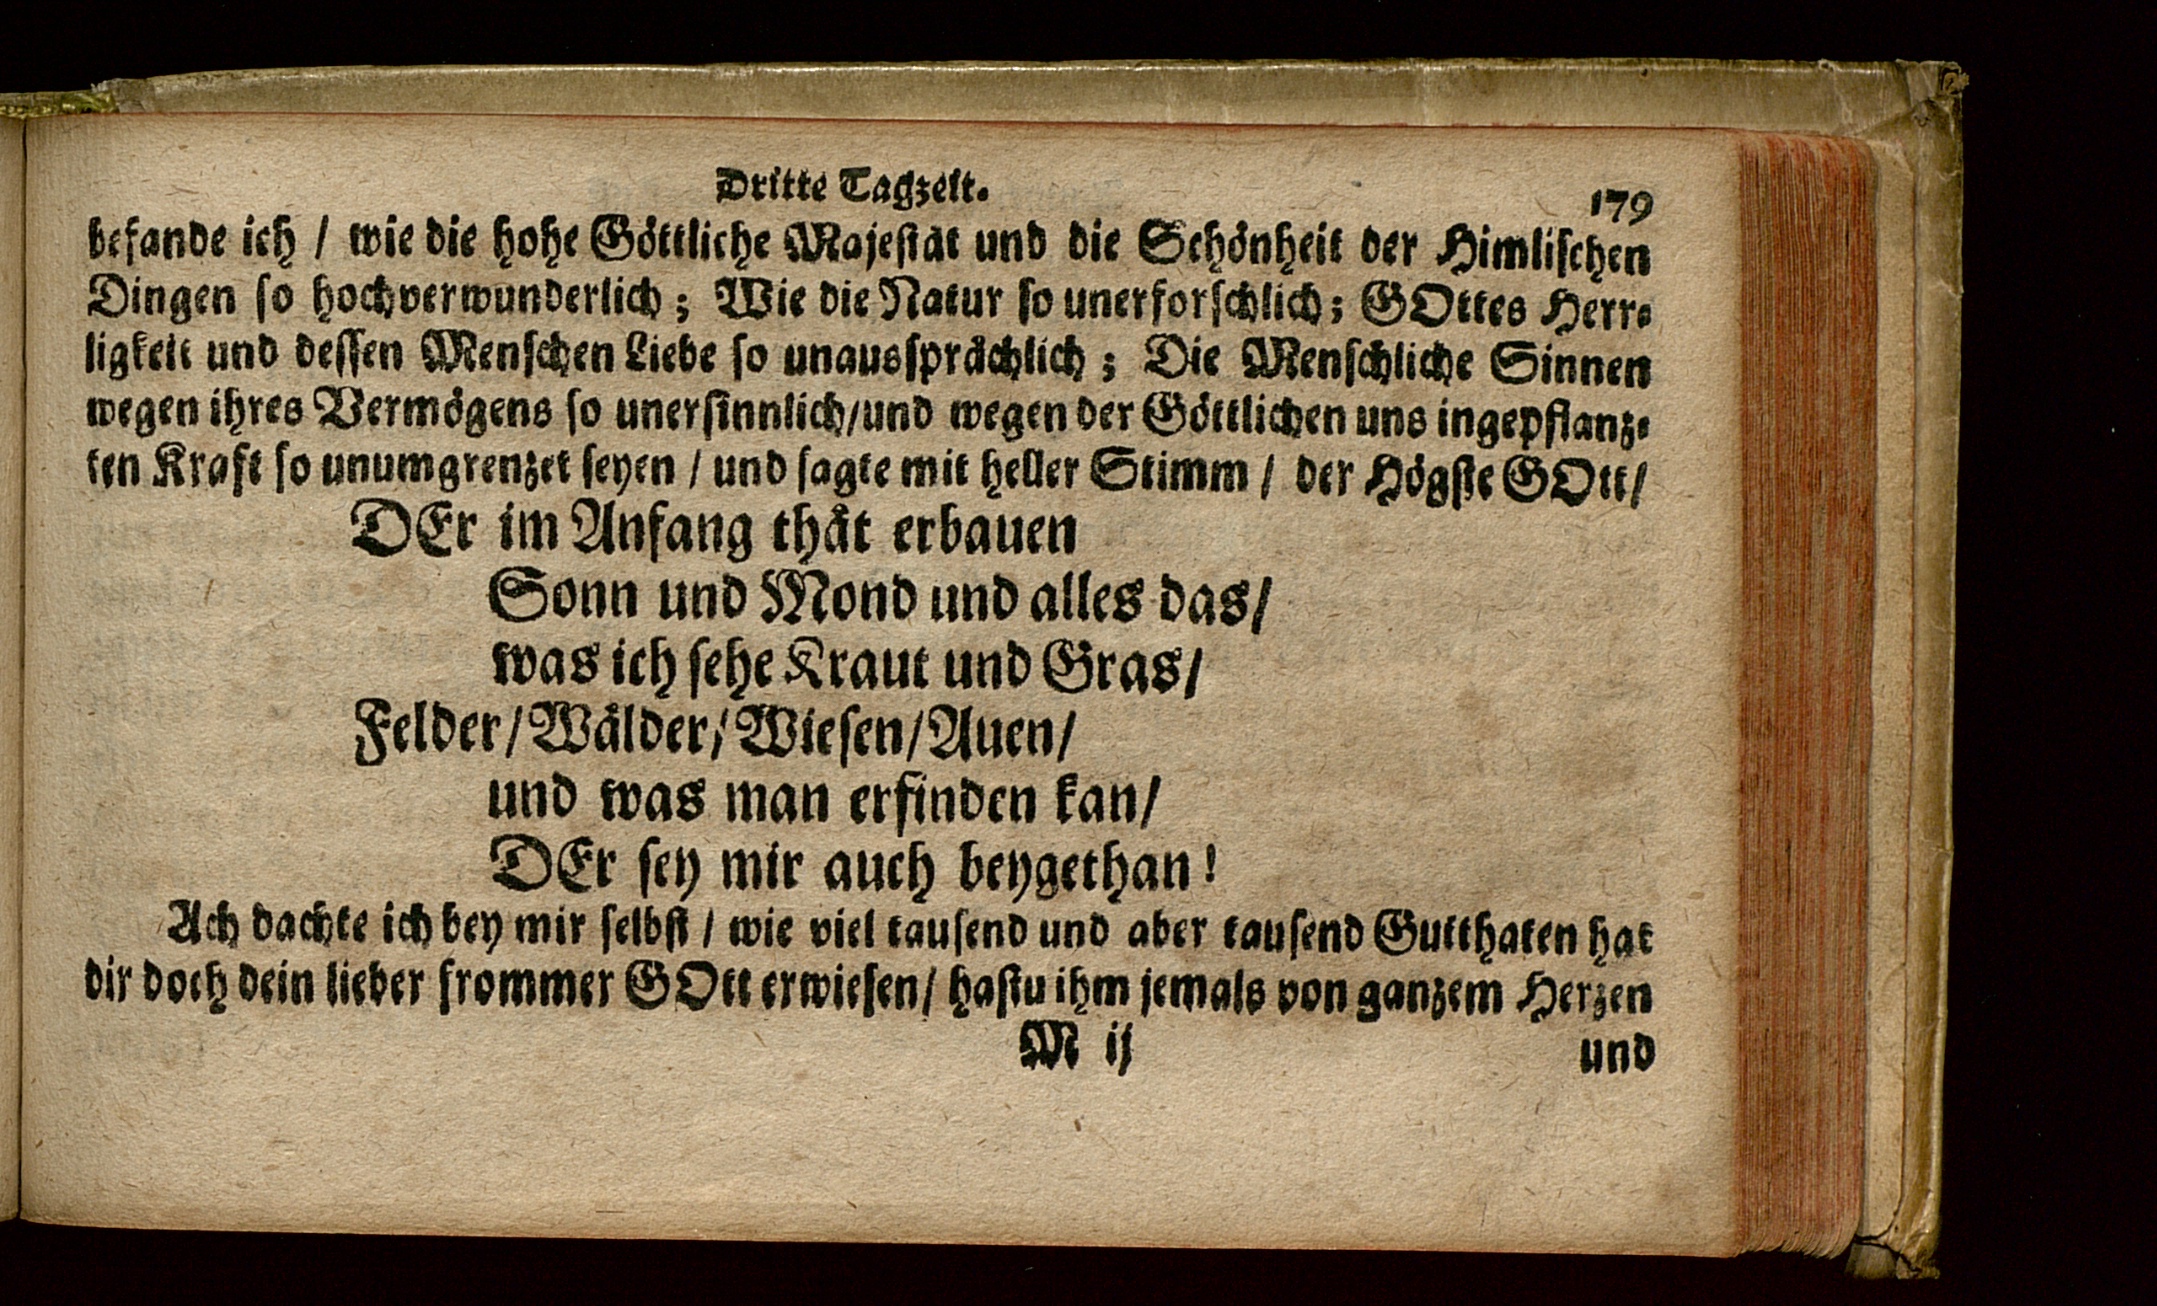 Dritte Tagzeit.
179
befande ich / wie die hohe Göttliche Majestät und die Schönheit der Himlischen
Dingen so hochverwunderlich; Wie die Natur so unerforschlich; GOttes Herr-
ligkeit und dessen Menschen Liebe so unaussprächlich; Die Menschliche Sinnen
wegen ihres Vermögens so unersinnlich/und wegen der Göttlichen uns ingepflanz-
ten Kraft so unumgrenzet seyen / und sagte mit heller Stimm / der Högste GOtt/
DEr im Anfang thät erbauen
Sonn und Mond und alles das/
was ich sehe Kraut und Gras/
Felder/Wälder/Wiesen/Auen/
und was man erfinden kan/
DEr sey mir auch beygethan!
Ach dachte ich bey mir selbst / wie viel tausend und aber tausend Gutthaten hat
dir doch dein lieber frommer GOtt erwiesen/ hastu ihm jemals von ganzem Herzen
M ij
und